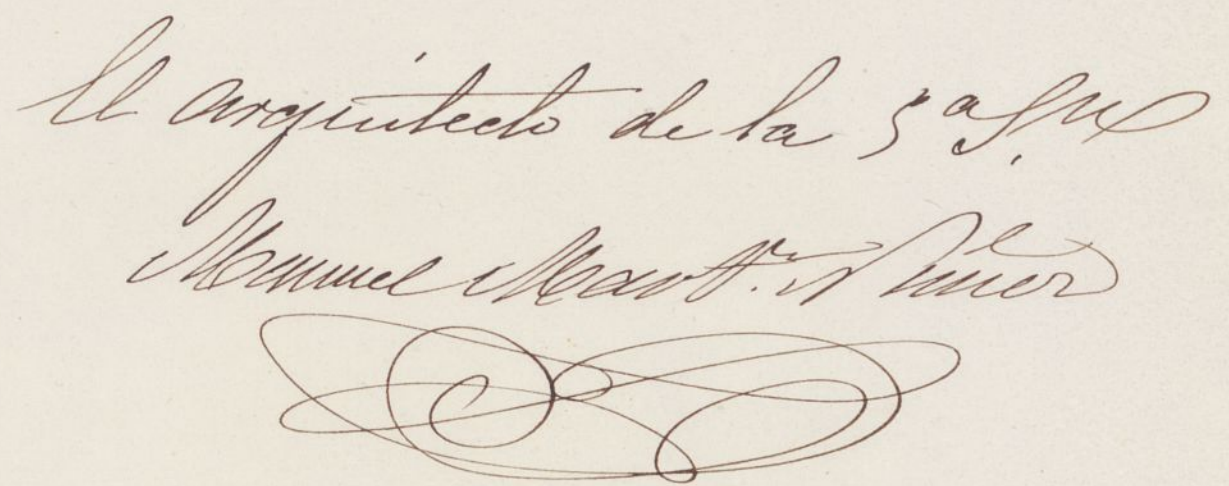 El arquitecto de la 3ª S.ⁿ
Manuel Mart.ⁿ Nuñez